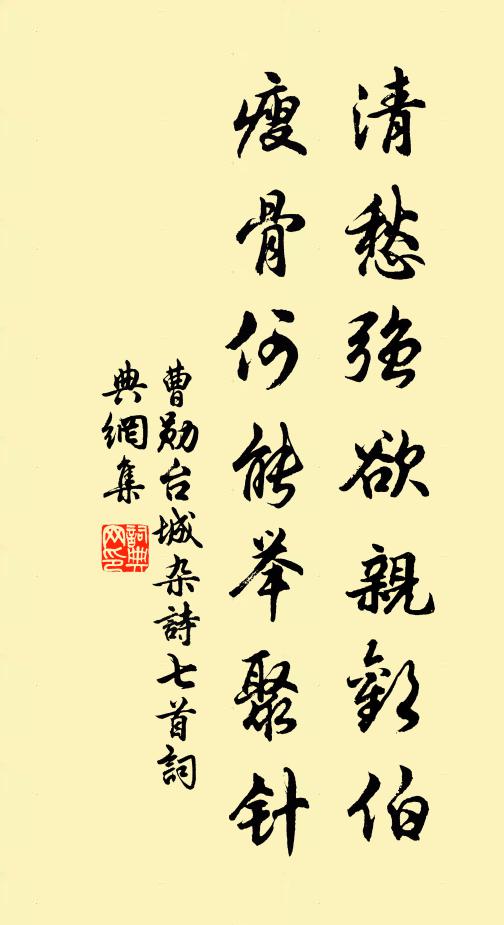 清愁強欲親歡伯
瘦骨何能举聚针
曹勋台城杂詩七首詞
典網集
詞典
网印